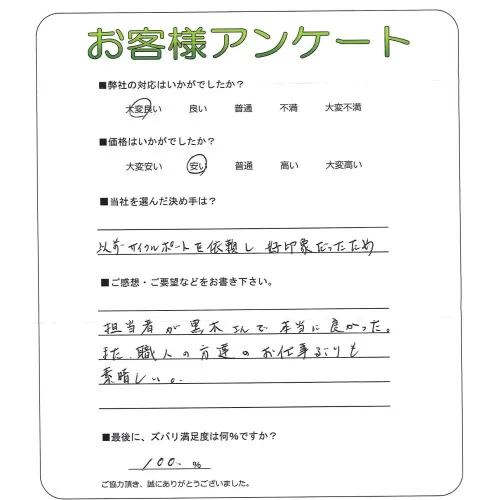 お客様アンケート
■弊社の対応はいかがでしたか？
大変良い 良い 普通 不満 大変不満
■価格はいかがでしたか？
大変安い 安い 普通 高い 大変高い
■当社を選んだ決め手は？
以前サイクルポートを依頼し 好印象だったため
■ご感想・ご要望などをお書き下さい。
担当者が黒木さんで本当に良かった。
また、職人の方達のお仕事ぶりも
素晴しい。
■最後に、ズバリ満足度は何%ですか？
100 %
ご協力頂き、誠にありがとうございました。